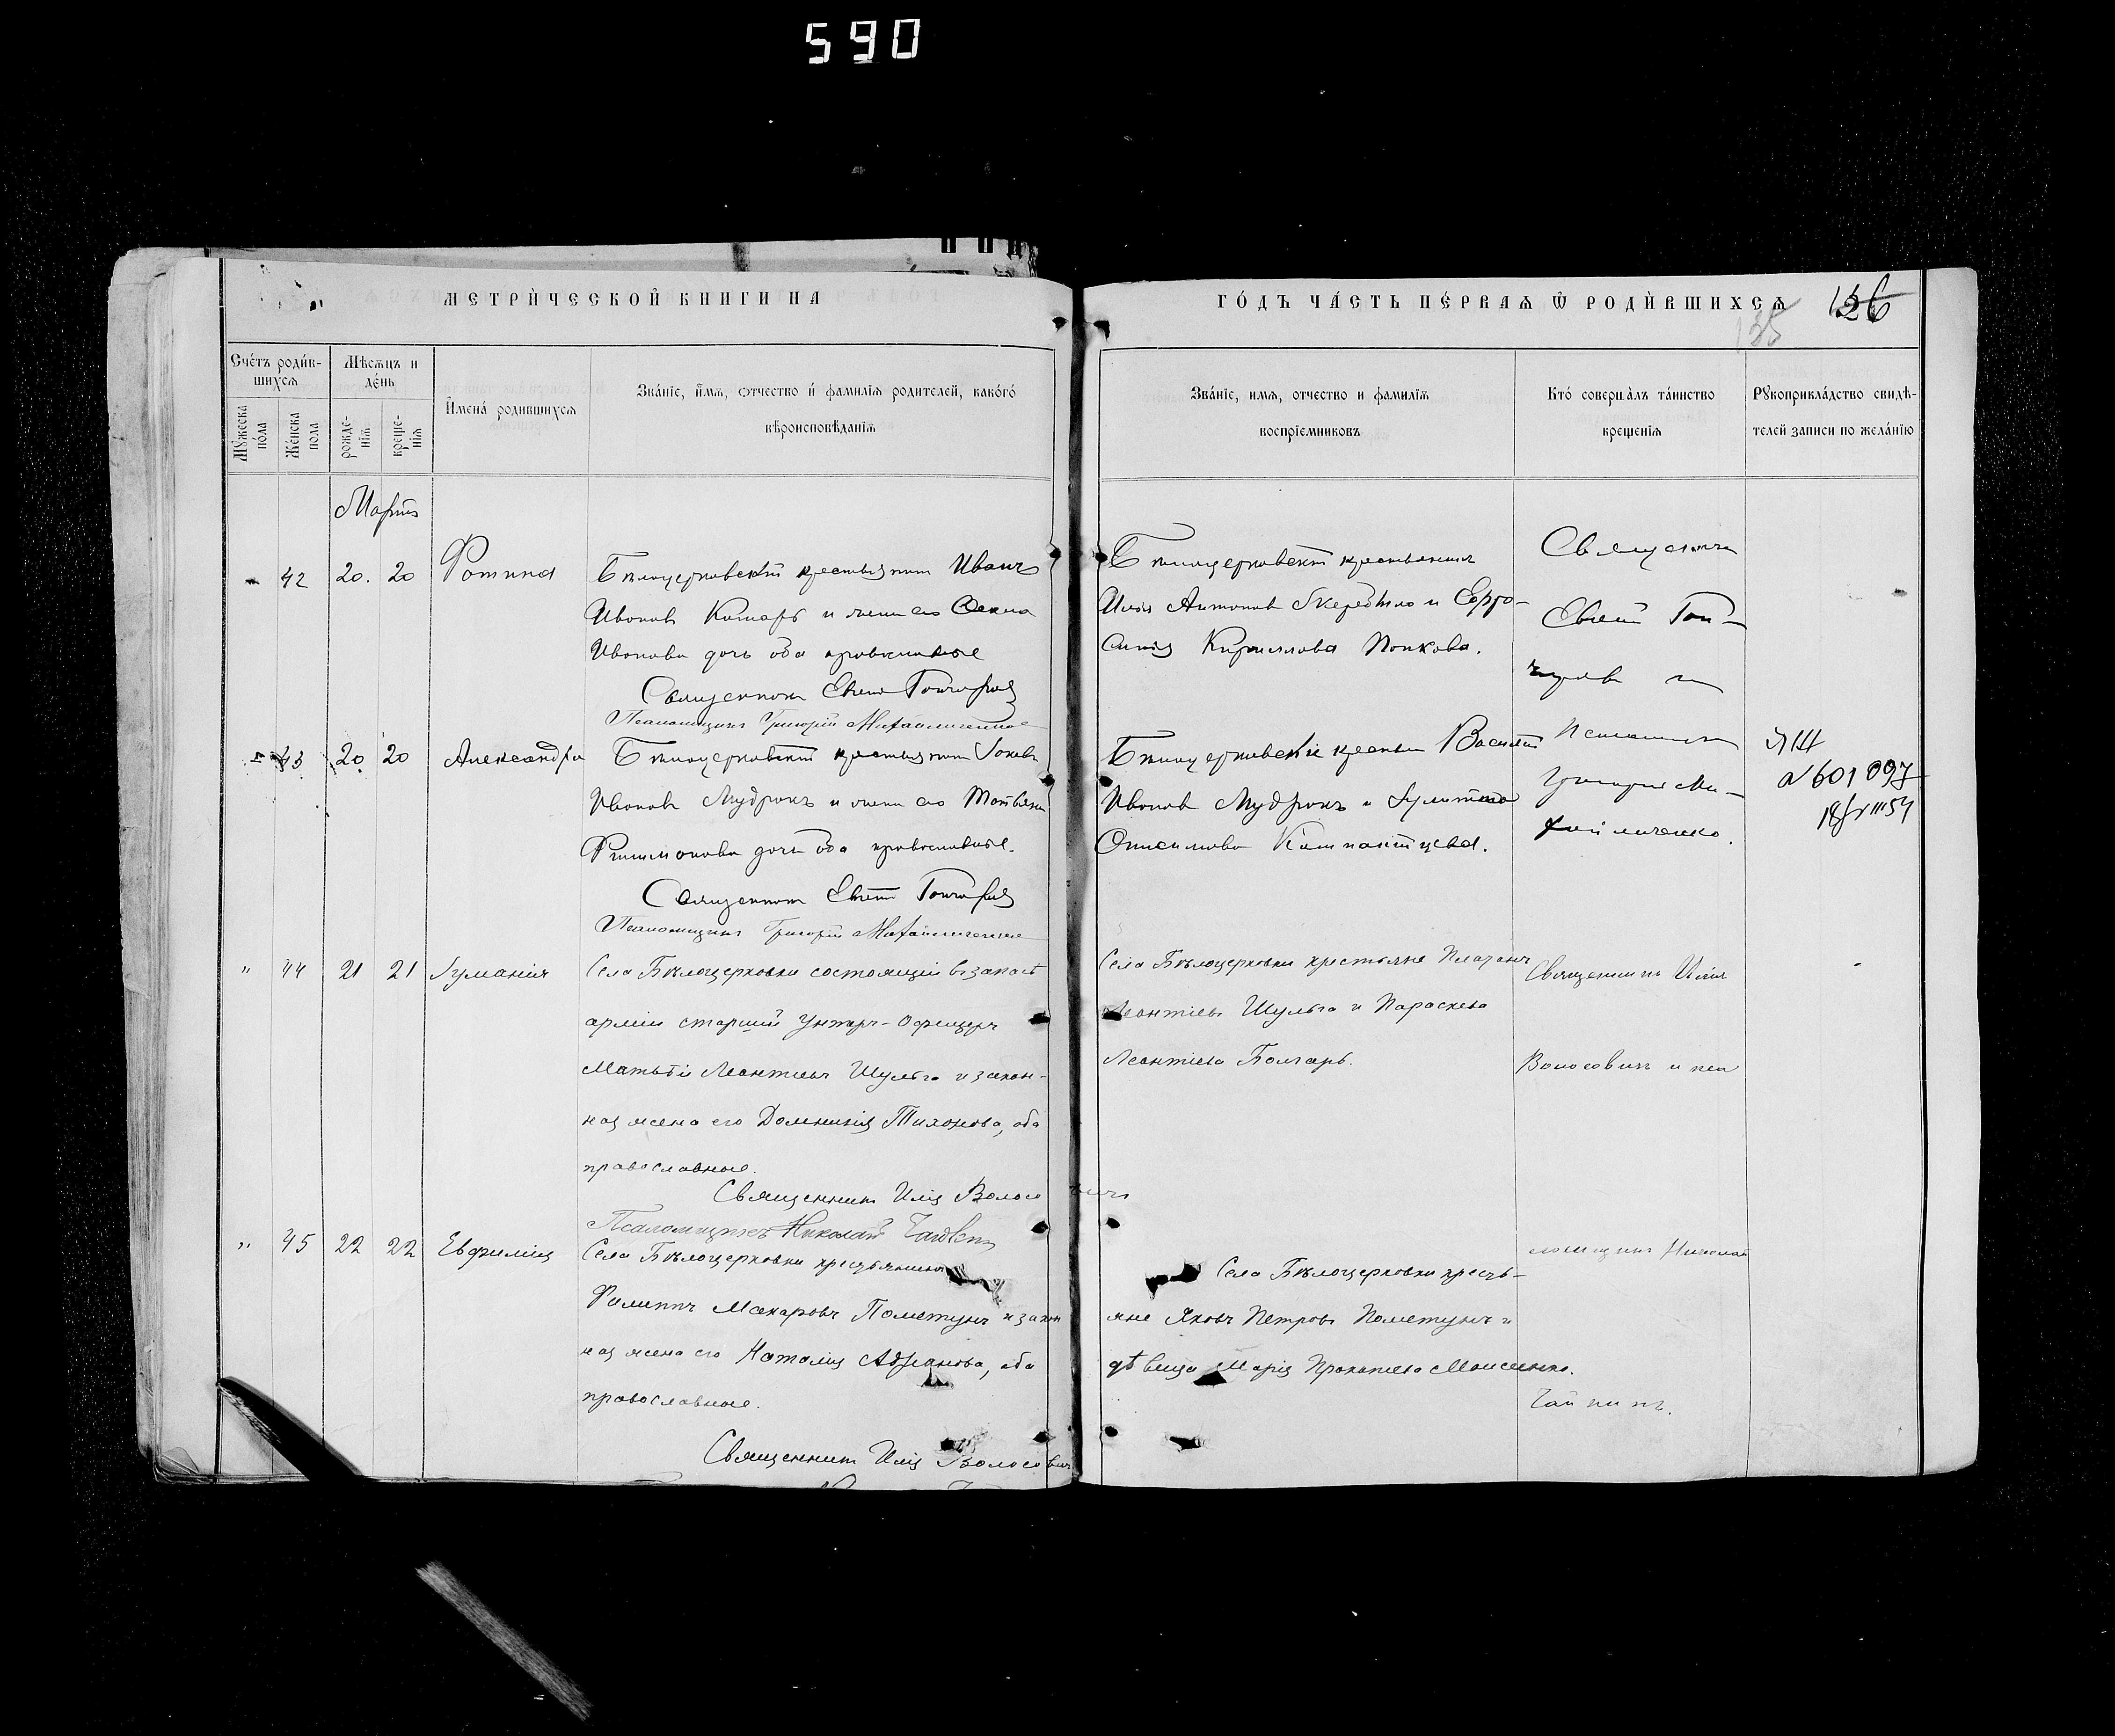 590
МЕТРИ́ЧЕСКОЙ КНИГИ НА
ГО́ДЪ ЧА́СТЬ ПЕ́РВАѦ Ѿ РОДИ́ВШИХСѦ
126
135
Сче́тъ роди́в-
шихсѧ
Мѣсѧцъ и
де́нь
Мꙋжеска
по́ла
Же́нска
пола
рожде-
нїѧ
креще-
нїѧ
Имена́ родившихсѧ
Зва́нїе, и́мѧ, отчество и́ фамилїѧ родителей, како́гѡ
вѣроисповѣданїѧ
Зва́нїе, имѧ, отчество и фамилїѧ
воспрїемниковъ
Кто́ соверша́лъ та́инство
креще́нїѧ
Рꙋкоприкла́дство свидѣ-
телей записи по жела́нїю
Мартъ
42 20. 20 Фотина
Бѣлоцерковскій крестьянин Иванъ
Иванов Комаръ и жена его
Иванова дочь оба православные
Священник Евгений Гончаров
Псаломщикъ Григорій Михайличенко
Бѣлоцерковскій крестьянинъ
Илья Антонов и Евфро-
синія Кириллова Попкова.
Священникъ
Евгеній Гон-
чаров и
43 20. 20 Александра
Бѣлоцерковскій крестьянин Іаковъ
Иванов Мудрокъ и жена его Татьяна
Филимонова дочь оба православные.
Священник Евгений Гончаров
Псаломщикъ Григорій Михайличенко
Бѣлоцерковскіе крестьяне Василій
Иванов Мудрокъ и
Онисимова
Псаломщикъ
Григорій Ми-
хайличенко.
ЯШ
№ 601097
" 44 21 21 Іуліанія
Села Бѣлоцерковки состоящій в запасѣ
арміи старшій Унтеръ-Офицеръ
Матѳій Леонтіевъ Шульга и закон-
ная жена его Домникія Тихонова, оба
православные.
Священник Илія Волосовичъ
Псаломщикъ Николай
Села Бѣлоцерковки крестьяне
Леонтіевъ Шульга и Параскева
Леонтіева Болгаръ.
Священникъ Илія
Волосовичъ и пса
" 45 22 22 Евфимія
Села Бѣлоцерковки крестьянинъ
Филиппъ Макаровъ Пометунъ и закон
ная жена его Наталія Адріанова, оба
православные.
Священник Илія Волосович
Села Бѣлоцерковки кресть-
яне Яковъ Петровъ Пометунъ и
дѣвица Марія Прокопіева Моисеенко.
ломщикъ Николай